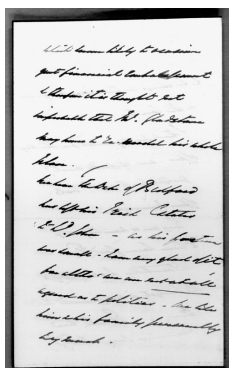 which seem likely to occasion
great financial embarrassment
& therefore it is thought not
improbable that Mr. Gladstone
may have to re-model his whole
plan.
The Duke of Bedford
has left his Irish Estates
to Ld. John — as his fortune
was small. I am very glad of it
for altho' we are not at all
agreed as to politics — we like
him & his family personally
very much.